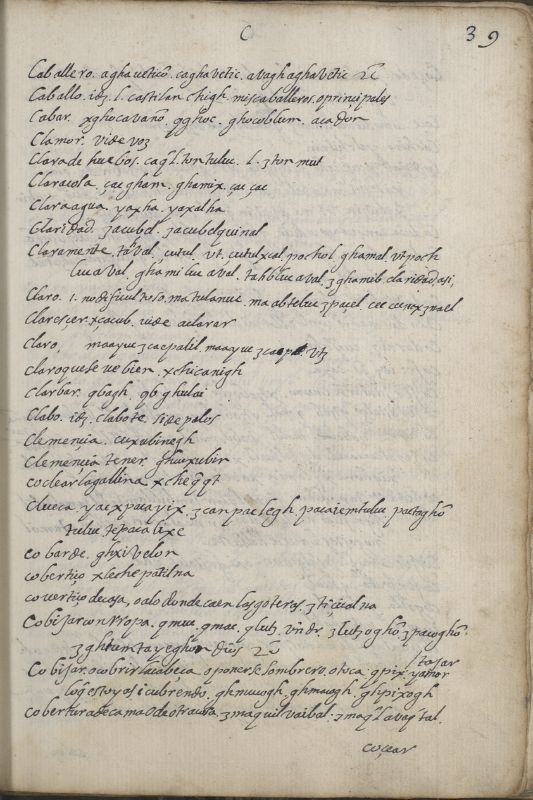 C 39
Caballero. aghauetico. caghauetic. auaghaghauetic
Caballo. l. castilan chigh. miscaballeros. oprincipales
Cabar. xghocauano qghoc. ghocoblum. acador
Clamor. vide voz
Clara de huebos. caql tontuluc. l. ztonmut
Claraeola. çaç gham. ghamix. çaç çac
Claraagua. yaxha. yaxalha
Claridad. zacubel. zacubelquinal
Claramente. taual. cutul. vt. cutulxcal. pochol. ghamal. vt poch
lucaual. ghamiluc aual. tahbluc aual. zghamib claridad, asi,
Claro. i. no dificultoso. matulanuc. ma abteluc zpaçel
Claresçer. xçacub. vide aclarar
Claro, maayuc zcaepalil. maayuc
claro que se ve bien. xchicanigh
clarbar. gbagh. qb ghulai
Clabo. clabete. side palos
Clemençia. cuxubinegh
Clemençia tener. ghcuxubin
coclear la gallina xcheqqt
Clueca yaexpacayix zcan paclegh. pacaiemtuluc pactagho
tuluc tepacalixe
cobarde. ghxiuelon
cobertiço xlechepatilna
couertiço de casa, o alo donde caen las goteras, ztiçiual na
Cobijar con Ropa. qmuc. qmac. glutz zlutzogho zpacogho.
dios
Cobijar. o cobrir la cabeça o ponerse sombrero. o toca. gpix.
log estoy asi cubrendo. ghmucogh. ghmacogh. ghpixogh
cobertura de cama o de otra cosa. zmaquil uaibal.
coçear